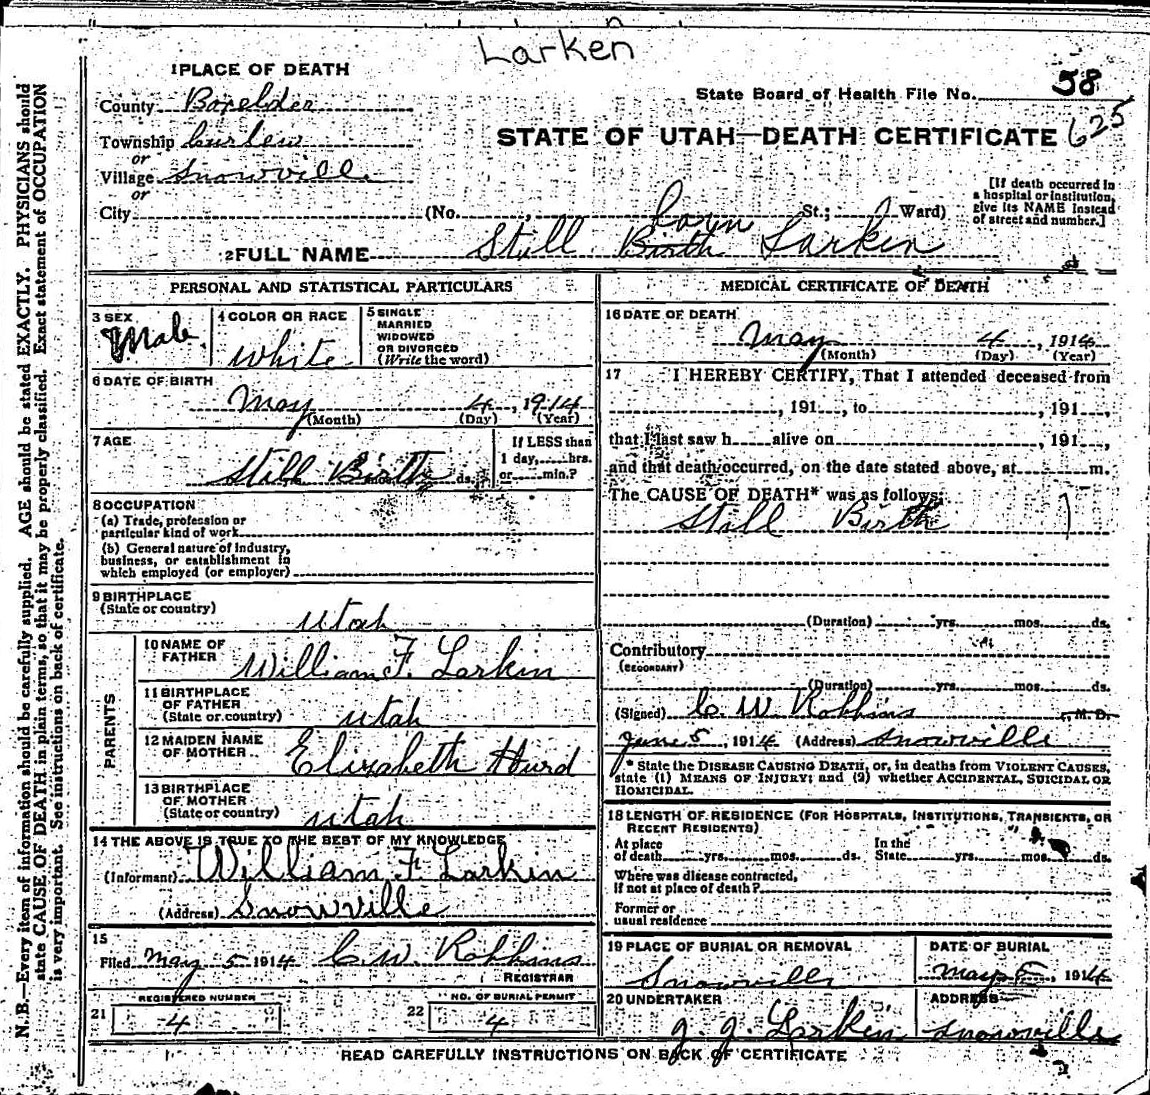 Larken
1 PLACE OF DEATH
County Boxelder
Township Curlew
or
Village Snowville
or
City
State Board of Health File No. 58
STATE OF UTAH—DEATH CERTIFICATE 625
(No. St.; Ward)
[If death occurred in
a hospital or institution,
give its NAME instead
of street and number.]
2 FULL NAME Still Birth born Larkin
PERSONAL AND STATISTICAL PARTICULARS
3 SEX Male
4 COLOR OR RACE White
5 SINGLE
MARRIED
WIDOWED
OR DIVORCED
(Write the word)
6 DATE OF BIRTH
May 4, 1914
(Month) (Day) (Year)
7 AGE
Still Birth ds.
If LESS than
1 day, hrs.
or min.?
8 OCCUPATION
(a) Trade, profession or
particular kind of work
(b) General nature of industry,
business, or establishment in
which employed (or employer)
9 BIRTHPLACE
(State or country)
Utah
PARENTS
10 NAME OF
FATHER William F. Larkin
11 BIRTHPLACE
OF FATHER
(State or country) Utah
12 MAIDEN NAME
OF MOTHER Elizabeth Hurd
13 BIRTHPLACE
OF MOTHER
(State or country) Utah
14 THE ABOVE IS TRUE TO THE BEST OF MY KNOWLEDGE
(Informant) William F Larkin
(Address) Snowville
15
Filed May 5 1914 C. W. Robbins
REGISTRAR
21 REGISTERED NUMBER
4
22 NO. OF BURIAL PERMIT
4
MEDICAL CERTIFICATE OF DEATH
16 DATE OF DEATH
May 4, 1914
(Month) (Day) (Year)
17 I HEREBY CERTIFY, That I attended deceased from
, 191 , to , 191 ,
that I last saw h alive on , 191 ,
and that death occurred, on the date stated above, at m.
The CAUSE OF DEATH* was as follows:
Still Birth
(Duration) yrs. mos. ds.
Contributory
(SECONDARY)
(Duration) yrs. mos. ds.
(Signed) C. W. Robbins M.D.
June 5, 1914 (Address) Snowville
* State the DISEASE CAUSING DEATH, or, in deaths from VIOLENT CAUSES,
state (1) MEANS OF INJURY; and (2) whether ACCIDENTAL, SUICIDAL OR
HOMICIDAL.
18 LENGTH OF RESIDENCE (FOR HOSPITALS, INSTITUTIONS, TRANSIENTS, OR
RECENT RESIDENTS)
At place
of death yrs. mos. ds.
In the
State yrs. mos. ds.
Where was disease contracted,
if not at place of death?
Former or
usual residence
19 PLACE OF BURIAL OR REMOVAL
Snowville
DATE OF BURIAL
May 5, 1914
20 UNDERTAKER
J. J. Larken
ADDRESS
Snowville
READ CAREFULLY INSTRUCTIONS ON BACK OF CERTIFICATE
N. B.—Every item of information should be carefully supplied. AGE should be stated EXACTLY. PHYSICIANS should
state CAUSE OF DEATH in plain terms, so that it may be properly classified. Exact statement of OCCUPATION
is very important. See instructions on back of certificate.